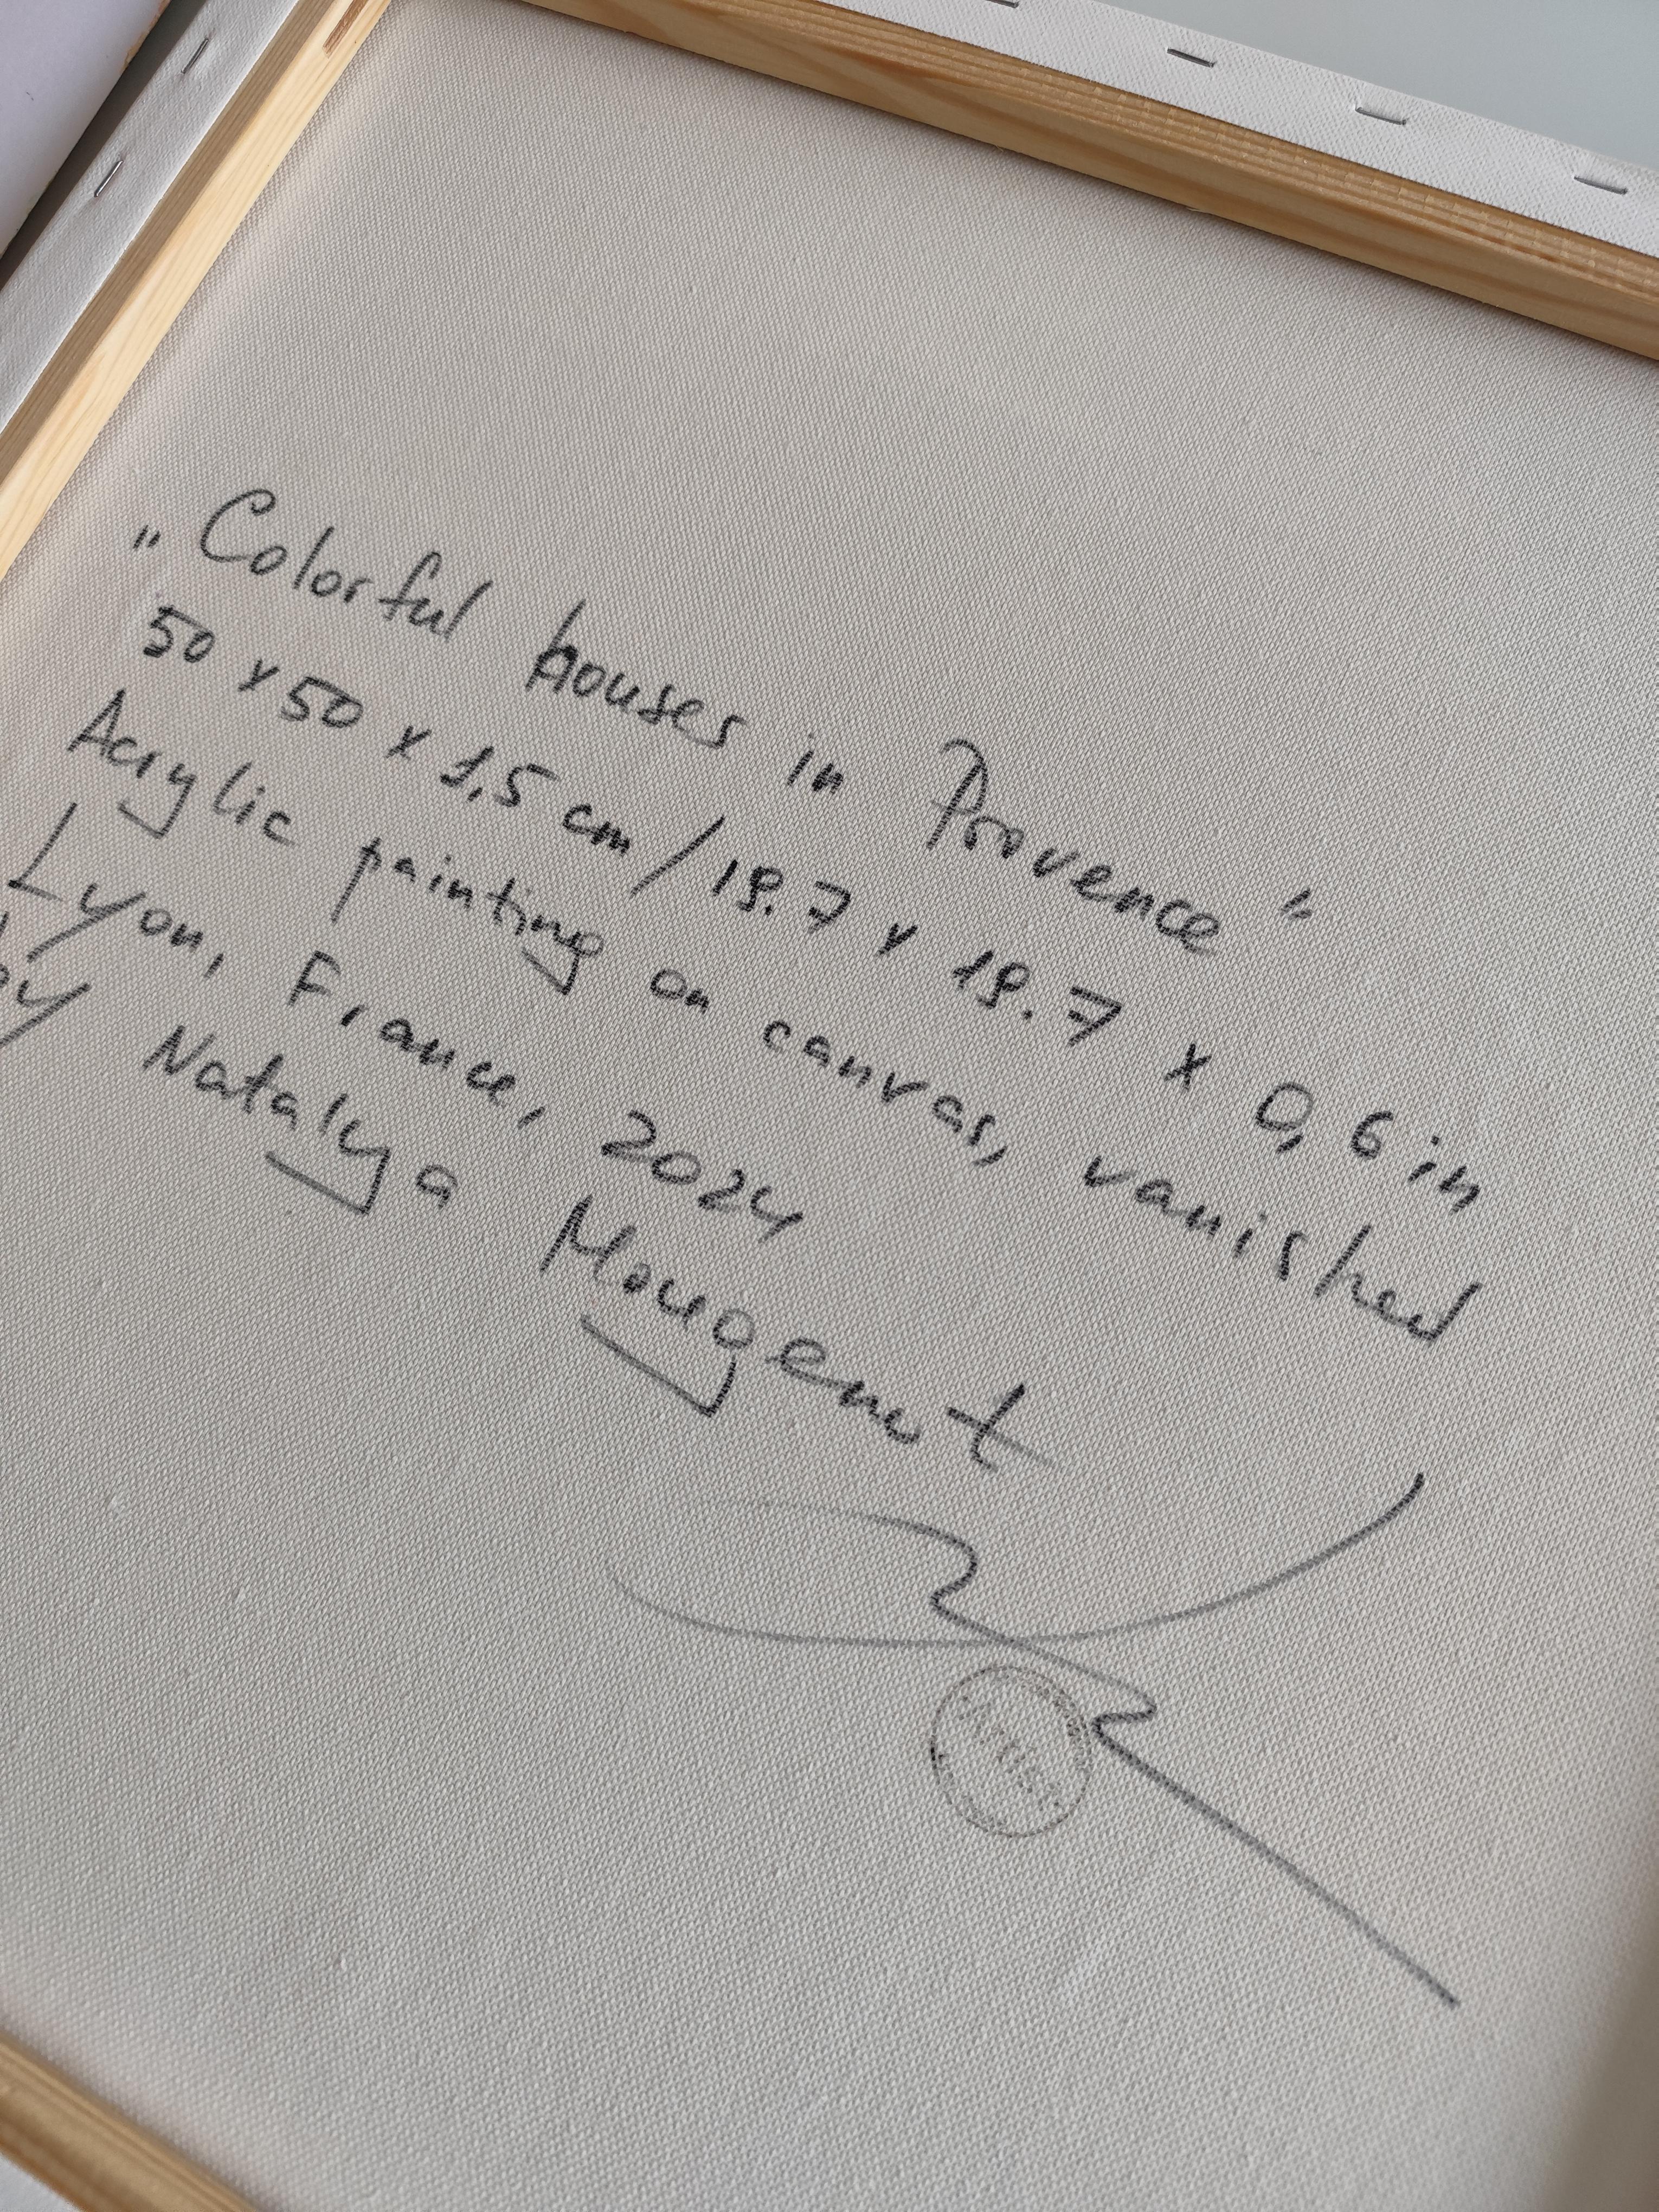 „Colorful houses in Provence“
50 x 50 x 1,5 cm / 19.7 x 19.7 x 0,6 in
Acrylic painting on canvas, vanished
Lyon, France, 2024
by Natalya Mougenot
Artist